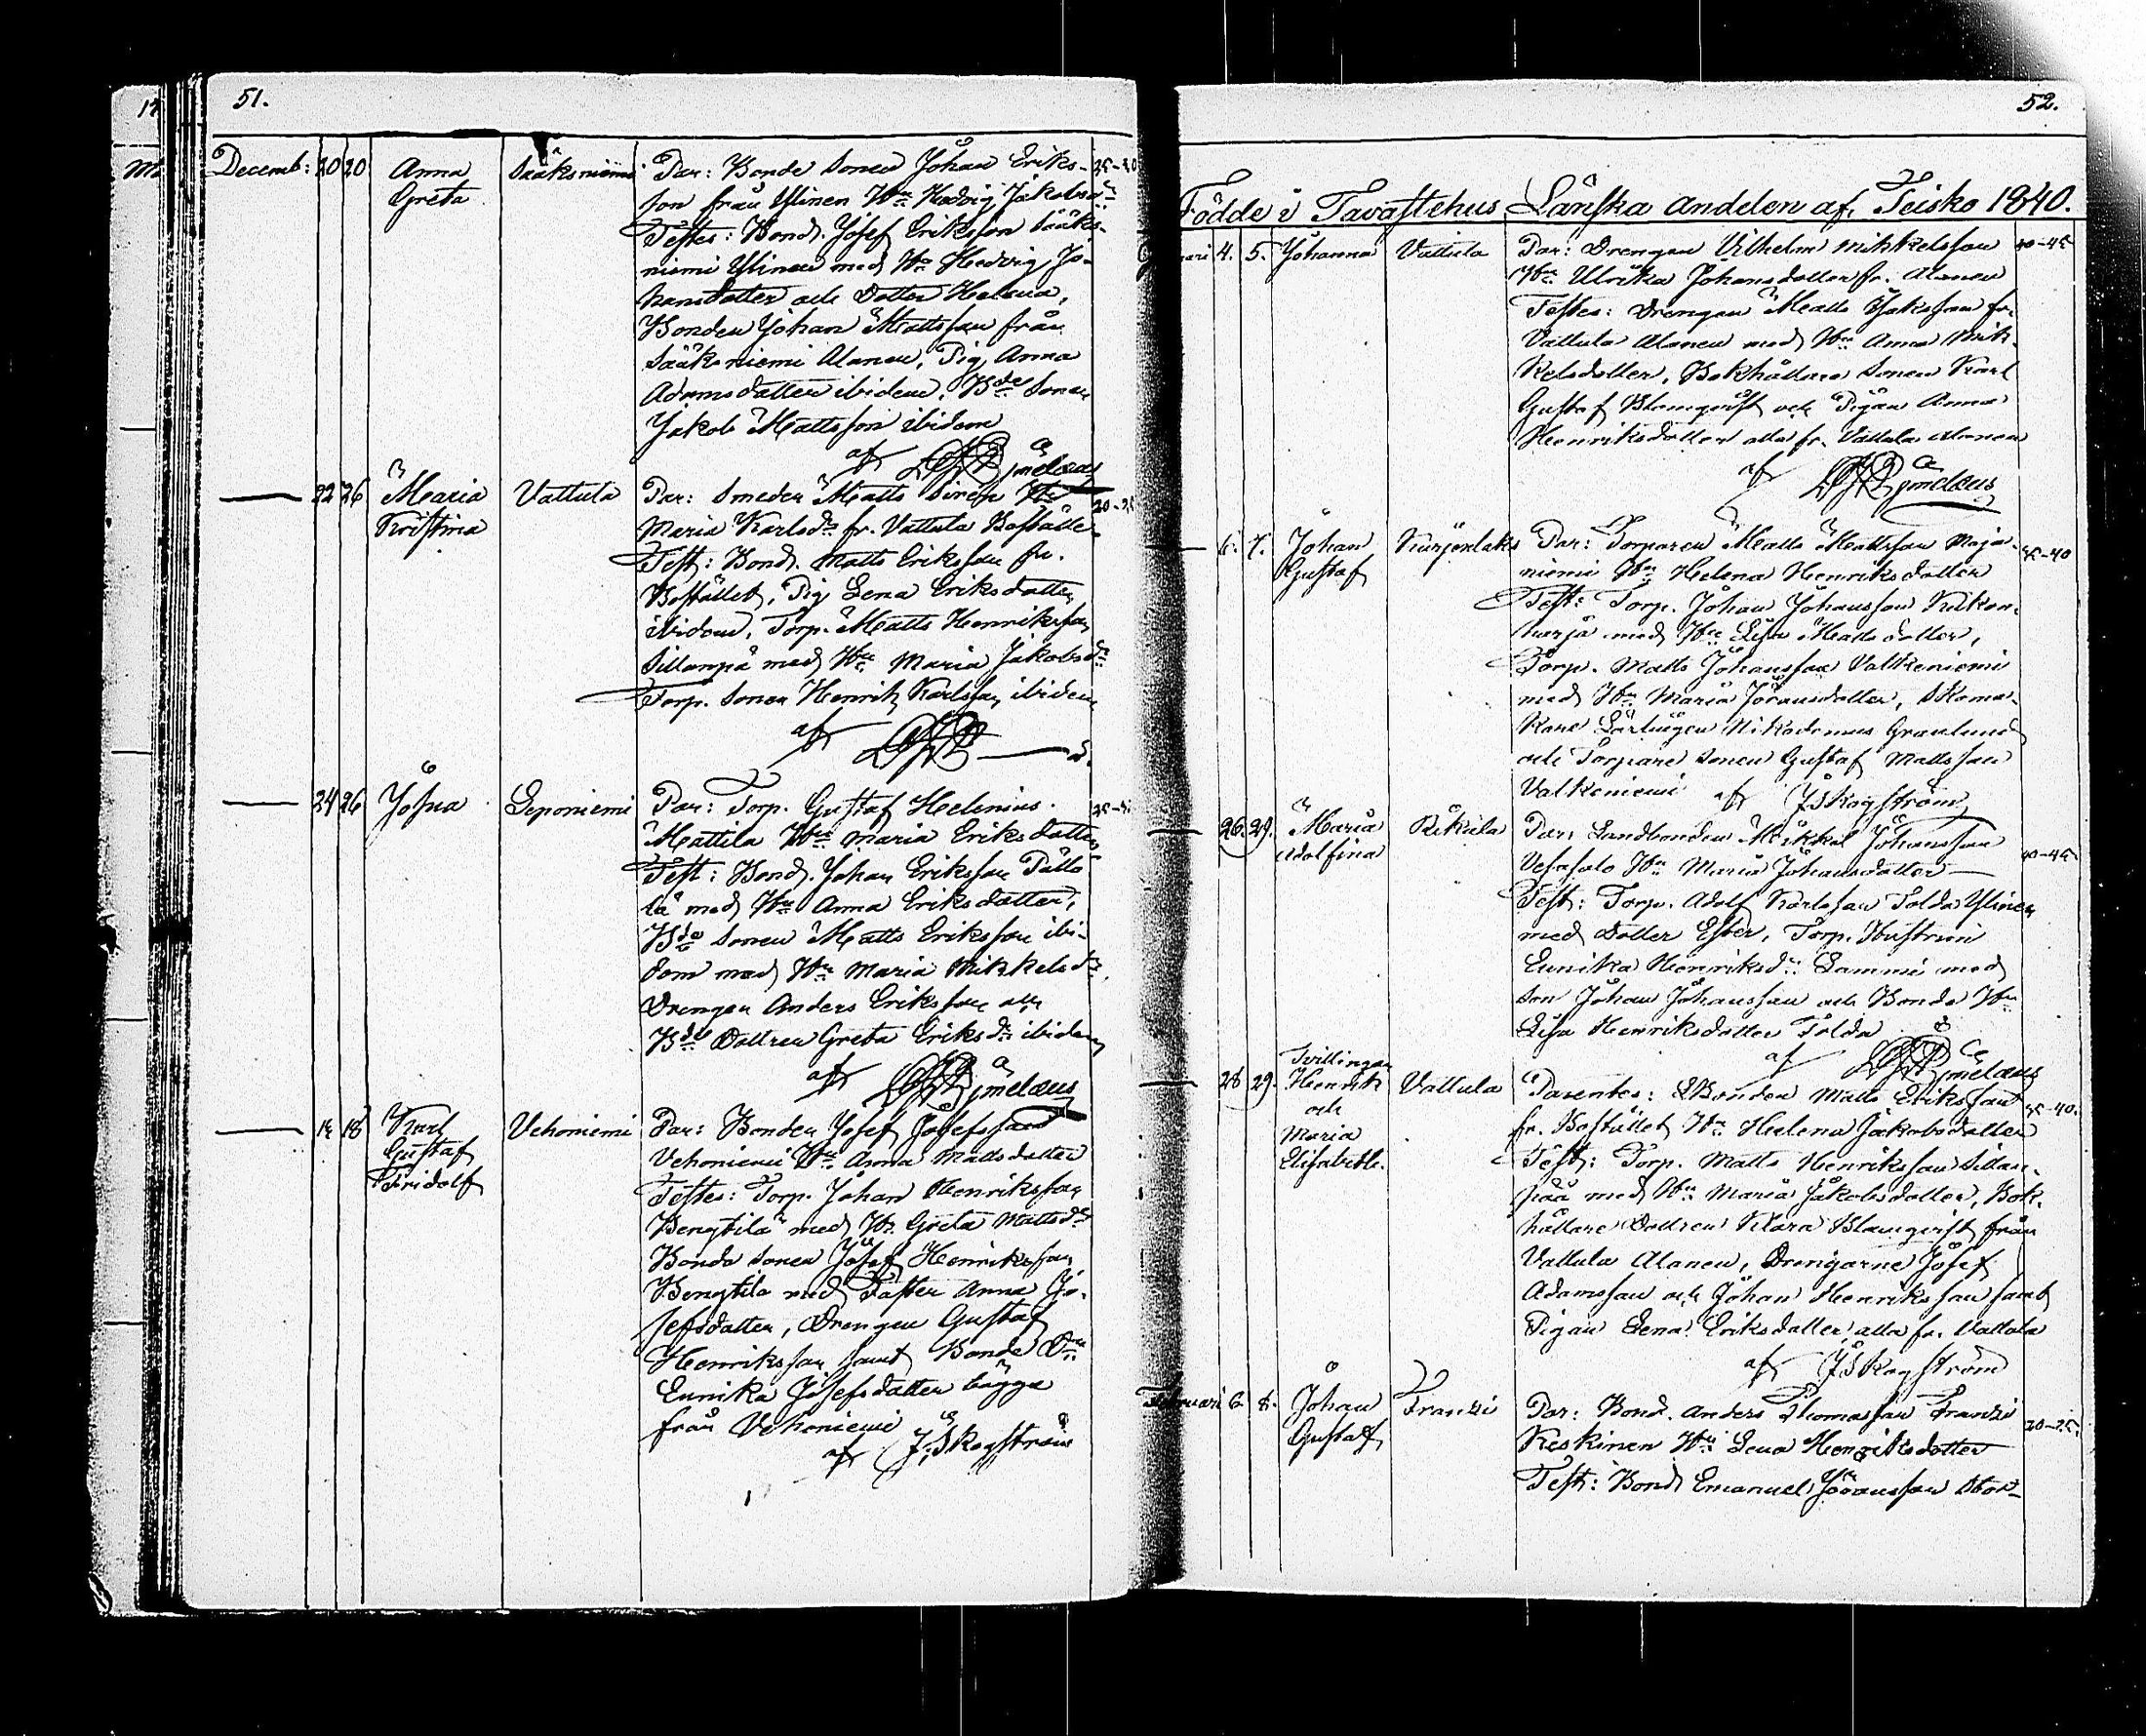 51.
Decemb: 20 20 Anna Greta Sääksniemi Par: Bonde Sonen Johan Eriks- 25-30
son från Ylinen Hu Hedvig Jakobsdr
Testes: Bond. Josef Eriksson Sääks-
niemi Ylinen med Hu Hedvig Jo-
hansdotter och Dotter Helena,
Bonden Johan Mattsson från
Sääksniemi Alanen, Pig Anna
Adamsdotter ibidem, Bde Sonen
Jakob Mattsson ibidem
af
22 26 Maria Kristina Vattula Par: Smeden Matts Siren Hu
Maria Karlsdr fr. Vattula Boställe
Test: Bond. Matts Eriksson fr.
Bostället, Pig Lena Eriksdotter
ibidem, Torp. Matts Henriksson
Sillanpä med Hu Maria Jakobsdr
Torp. Sonen Henrik Karlsson ibidem
af
24 26 Josua Leponiemi Par: Torp. Gustaf Helenius
Mattila Hu Maria Eriksdotter
Test: Bond. Johan Eriksson Pätto
lä med Hu Anna Eriksdotter,
Bde Sonen Matts Eriksson ibi-
dem med Hu Maria Mikkelsdr
Drengen Anders Eriksson och
Bde Dottren Greta Eriksdr ibidem
af
18 Karl Gustaf Fridolf Vehoniemi Par: Bonden Josef Josefsson
Vehoniemi Hu Anna Mattsdotter
Testes: Torp. Johan Henriksson
Bengtilä med H. Greta Mattsdr
Bonde Sonen Josef Henriksson
Bengtila med Faster Anna Jo-
sefsdotter, Drengen Gustaf
Henriksson samt Bonde Dr
Eunika Josefsdotter bägge
från Vehoniemi
af J. Skogström
52.
Födde i Tavastehus Länska andelen af Teisko 1840.
4. 5. Johanna Vattula Par: Drengen Vilhelm Mikkelsson 40-45
Hu Ulrika Johansdotter fr. Alanen
Testes: Drengen Matts Isaksson fr.
Vattula Alanen med Hu Anna Mik-
kelsdotter, Bokhållare Sonen Karl
Gustaf Blomqvist och Pigan Anna
Henriksdotter alla fr. Vattula Alanen
af
6. 7. Johan Gustaf Kurjenlaks Par: Torparen Matts Mattsson Maja- 35-40
niemi Hu Helena Henriksdotter
Test: Torp. Johan Johansson
med Hu Lisa Mattsdotter,
Torp. Matts Johansson Valkeniemi
med Hu Maria Göransdotter, Skoma-
kare Lärlingen Nikodemus Granlund
och Torpare Sonen Gustaf Mattsson
Valkeniemi af J. Skogström
26. 29. Maria Adolfina Rikala Par: Landbonden Mikkel Johansson 40-45
Vesasalo Hu Maria Johansdotter
Test: Torp. Adolf Karlsson Tolda Ylinen
med Dotter Ester, Torp. Hustrun
Eunika Henriksdr Lammi med
Son Johan Johansson och Bonde Hu
Lisa Henriksdotter Tolda
af
28 29. Tvillingar Henrik och Maria Elisabeth. Vattula Parentes: Bonden Matts Eriksson 35-40.
fr. Bostället Hu Helena Jakobsdotter
Test: Torp. Matts Henriksson Sillan-
pää med Hu Maria Jakobsdotter, Bok-
hållare Dottren Klara Blomqvist från
Vattula Alanen, Drengarne Josef
Adamsson och Johan Henriksson samt
Pigan Lena Eriksdotter alla fr. Vattula
af J. Skogström
Februari 6 8. Johan Gustaf Franzi Par: Bond. Anders Thomasson Franzi 20-25.
Keskinen Hu Lena Henriksdotter
Test: Bond Emanuel Göransson Stor-